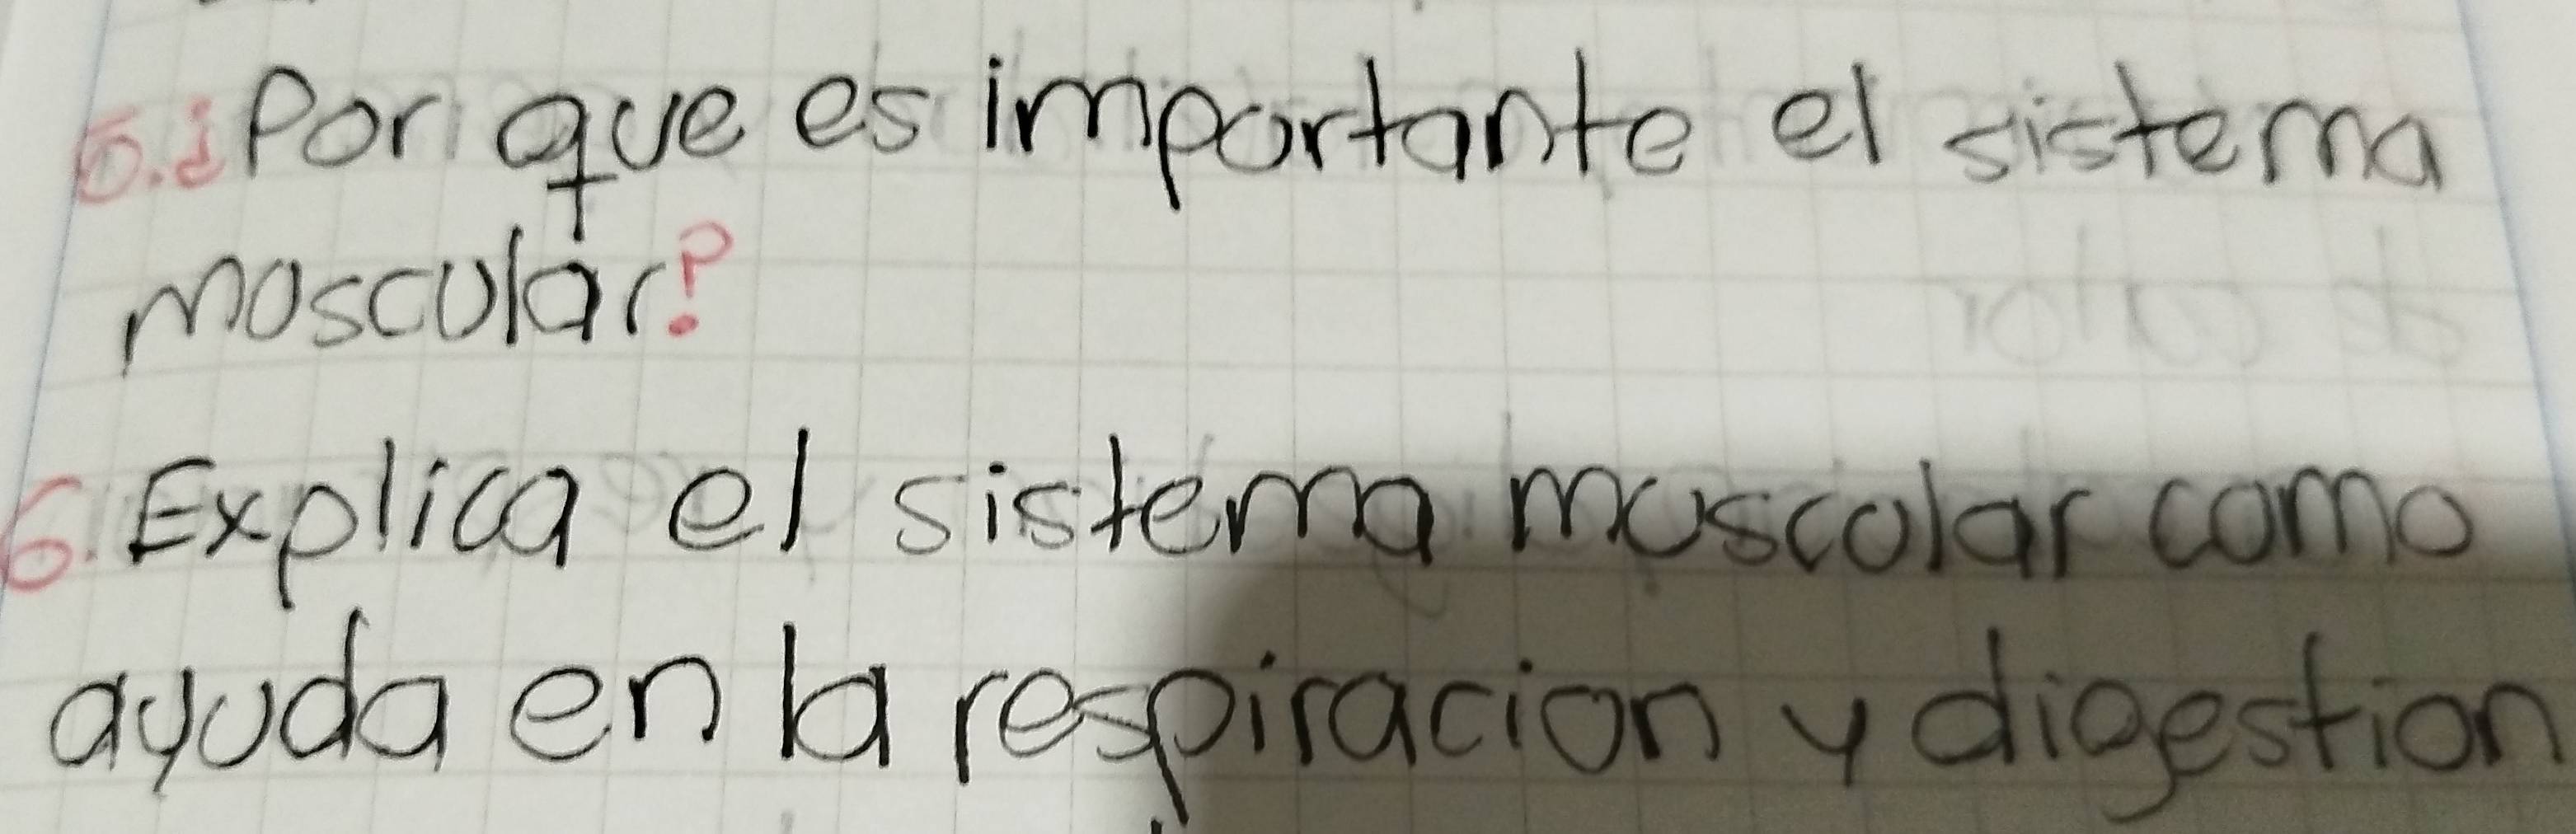 5.¿Por que es importante el sistema
muscular?
6.Explica el sistema muscular como
ayuda en la respiracion y digestion